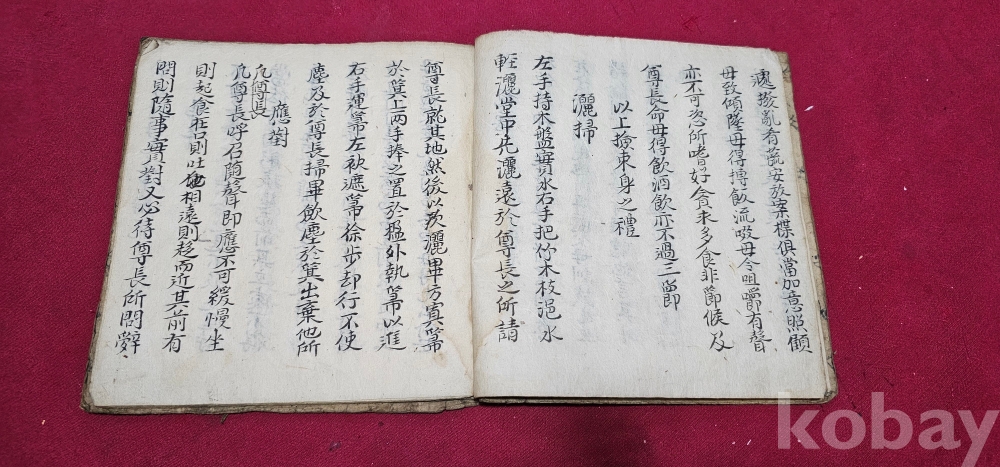 遽撥亂有蔬安放案楪俱當加意照顧
毋致傾墜毋得摶飯流啜毋令咀嚼有聲
亦不可恣所嗜好貪未多食非節候及
尊長命毋得飮酒飮亦不過三節
以上撿束身之禮
灑掃
左手持木盤實水右手把竹木枝浥水
輕灑堂中先灑遠於尊長之所請
尊長就其地然後以次灑畢方寘箒
於箕上兩手捧之置於盤外執箒以進
右手運箒左袂遮箒徐步却行不使
塵及於尊長掃畢飮塵於箕出棄他所
應對
凡尊長
凡尊長呼召隨聲即應不可緩慢坐
則起食在口則吐地相遠則趍而近其前有
問則隨事實對又必待尊長所問辭
kobay